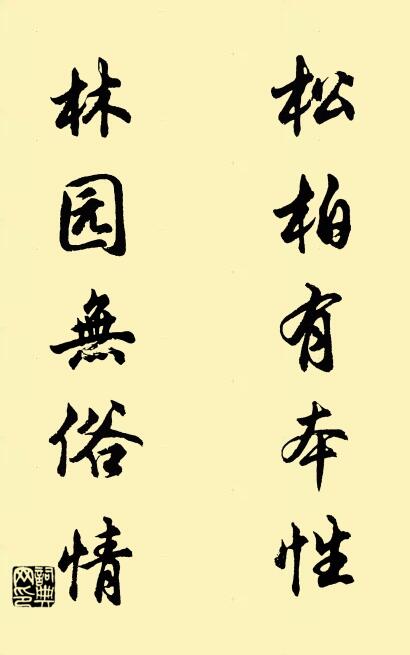 松柏有本性
林园無俗情
詞典網印